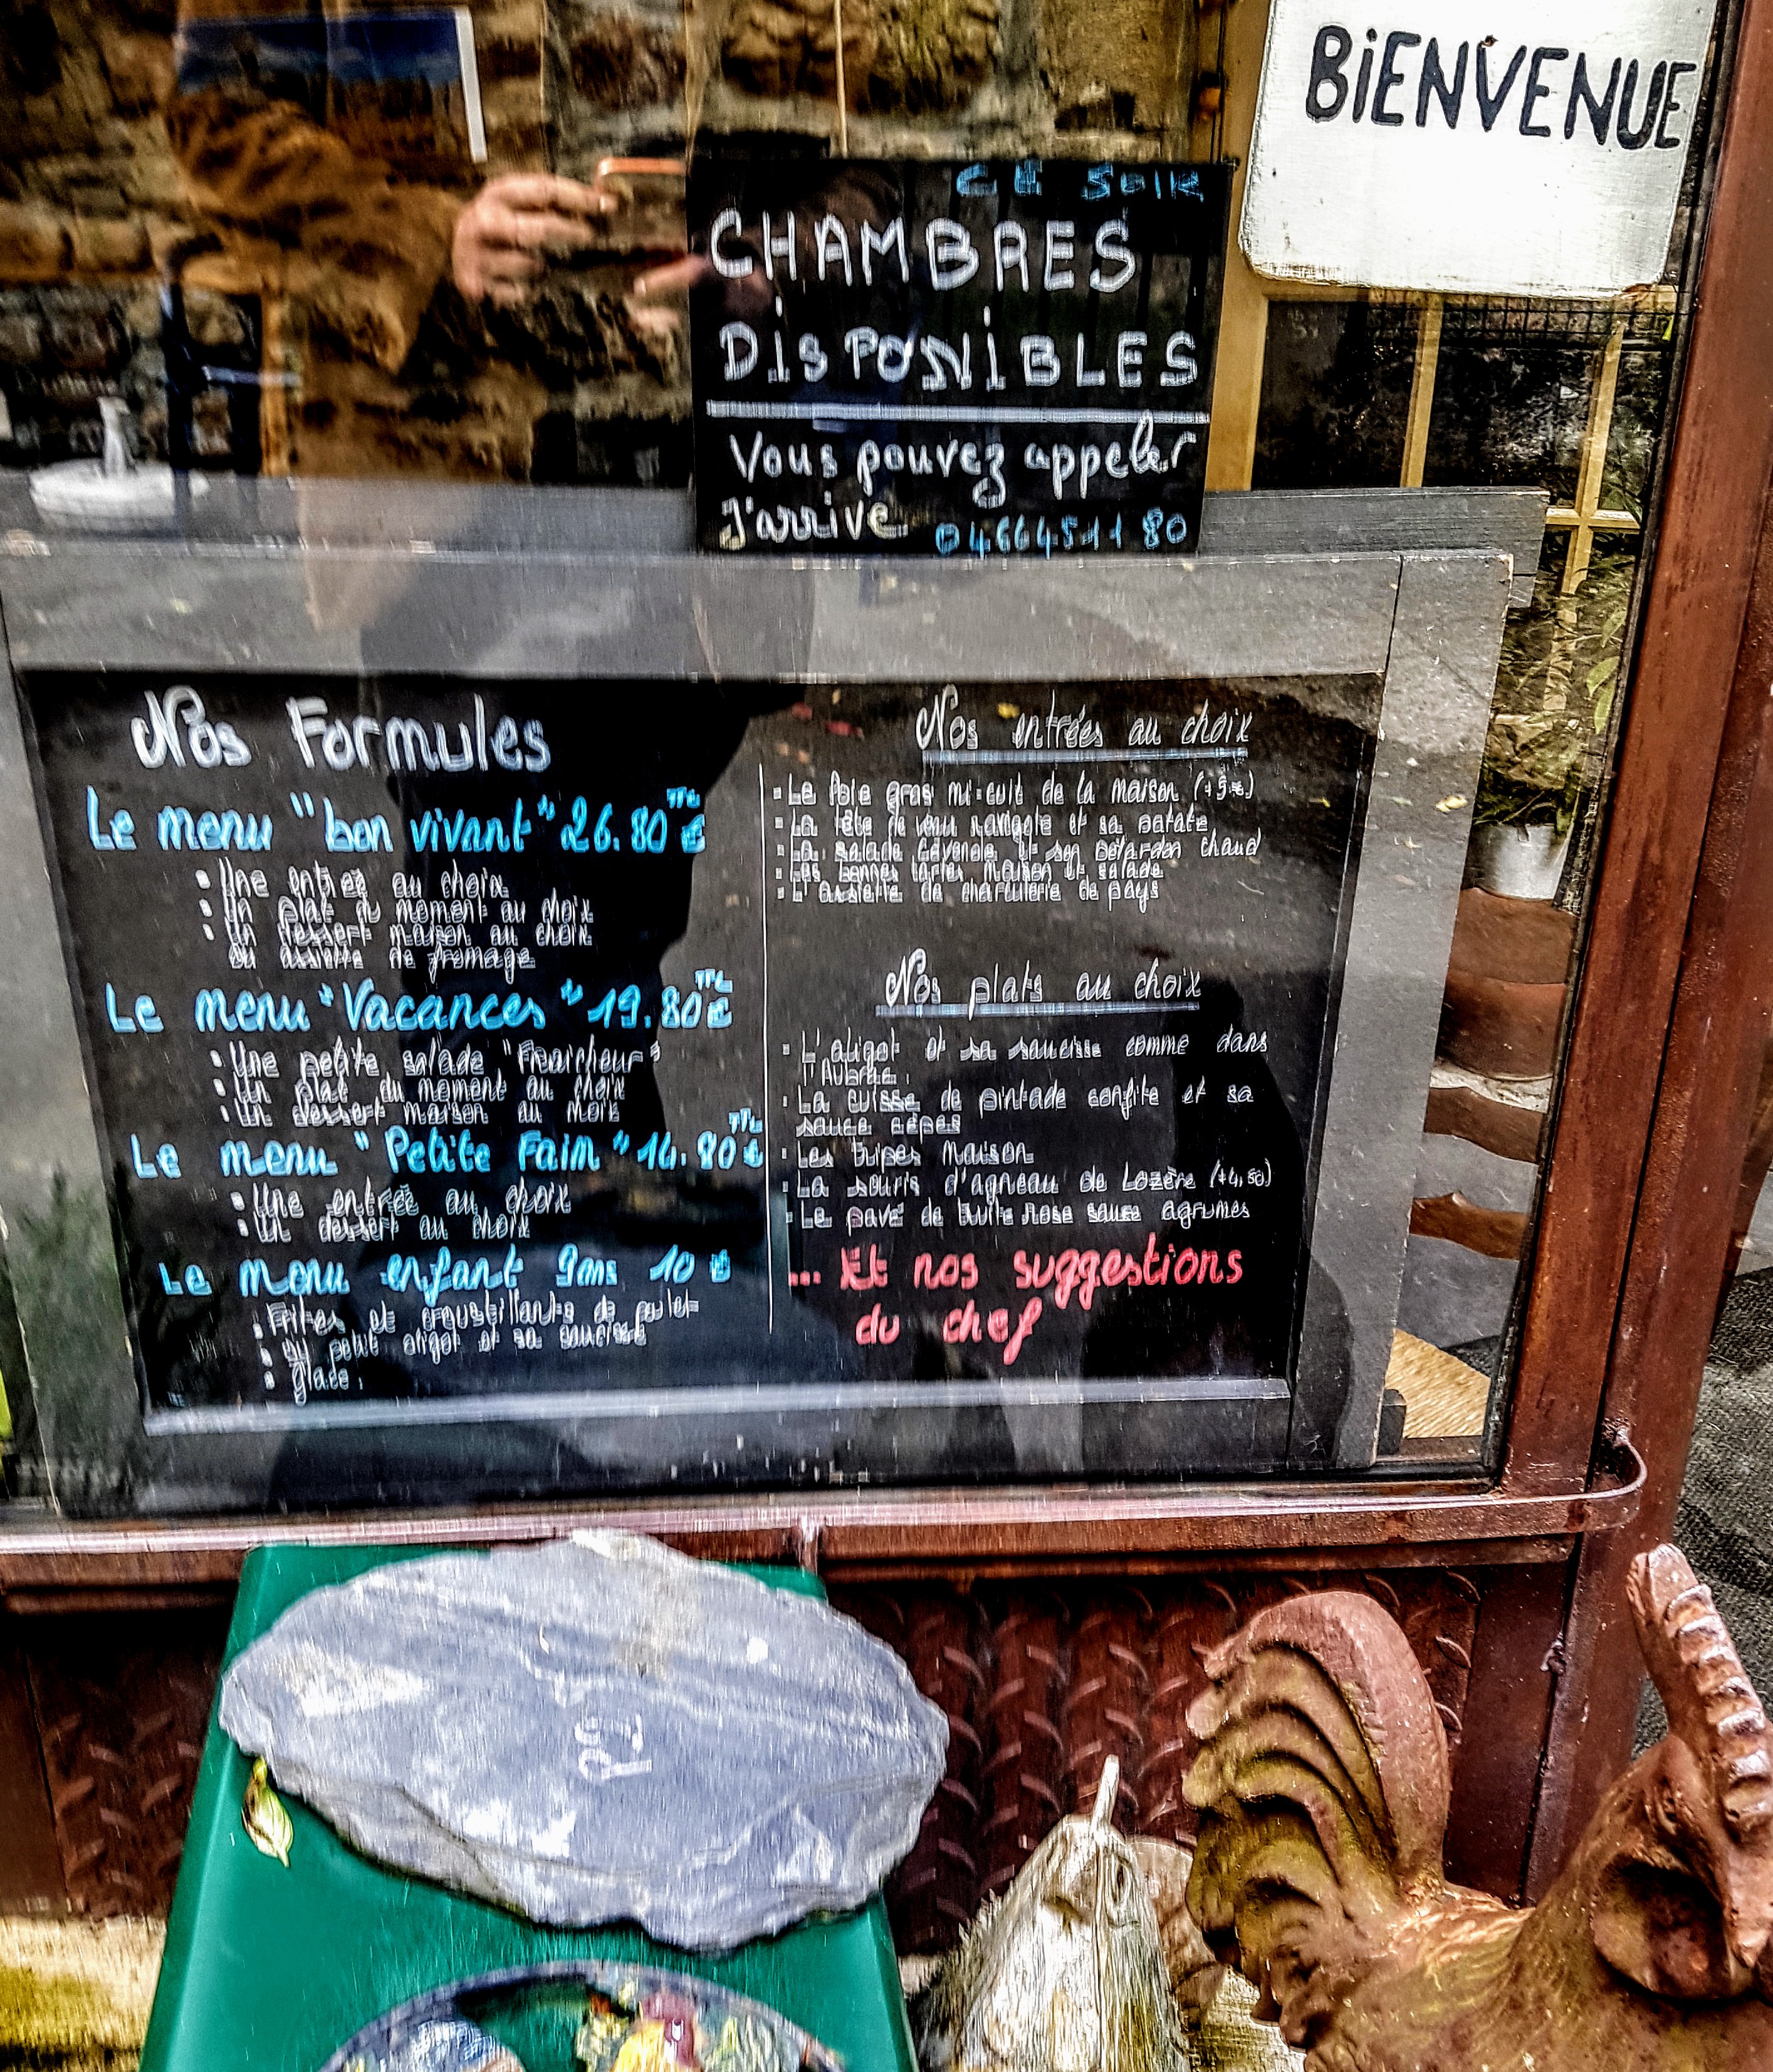 BiENVENUE
CE SOIR
CHAMBRES
DisPONiBLES
Vous pouvez appeler
J'arrive 0466451180
Nos Formules
Le menu "bon vivant" 26.80 TTC €
• Une entrée au choix
• Un plat du moment au choix
• Un dessert maison au choix
ou assiette de fromage
Le menu "Vacances" 19.80 TTC €
• Une petite salade "Fraîcheur"
• Un plat du moment au choix
• Un dessert maison au choix
Le menu "Petite Faim" 14.80 TTC €
• Une entrée au choix
• Un dessert au choix
Le menu enfant 9ans 10 €
• Frites et croustillants de poulet
• ou petit aligot et sa saucisse
• glace.
Nos entrées au choix
• Le foie gras mi-cuit de la maison (+5€)
• La tête de veau ravigote et sa patate
• La salade Cévenole et son pélardon chaud
• Les bonnes tartes maison et salade
• L'assiette de charcuterie de pays
Nos plats au choix
• L'aligot et sa saucisse comme dans
l'Aubrac.
• La cuisse de pintade confite et sa
sauce cèpes
• Les tripes maison
• La souris d'agneau de Lozère (+4,50)
• Le pavé de truite rose sauce agrumes
... Et nos suggestions
du chef